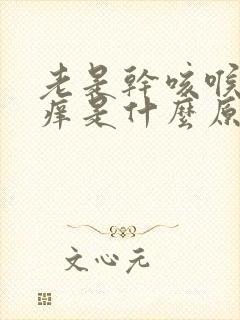 老是幹咳喉
痒是什麼原
文心元